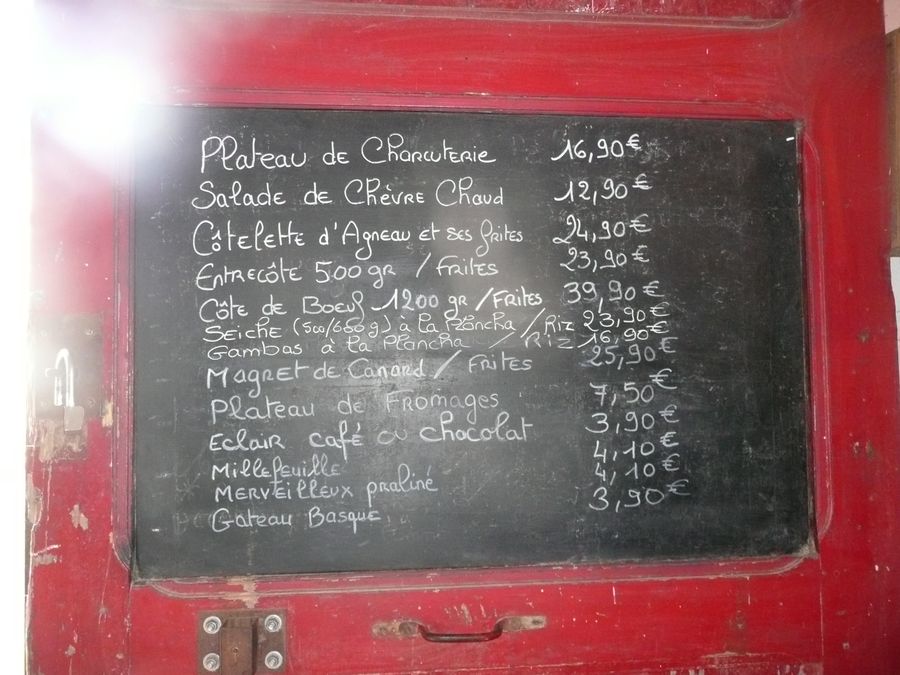 Plateau de Charcuterie 16,90€
Salade de Chèvre Chaud 12,90€
Côtelette d'Agneau et ses frites 24,90€
Entrecôte 500gr / Frites 23,90€
Côte de Boeuf 1200 gr / Frites 39,90€
Seiche (500/600g) à la Plancha / Riz 23,90€
Gambas à la Plancha / Riz 16,90€
Magret de Canard / Frites 25,90€
Plateau de Fromages 7,50€
Eclair café ou chocolat 3,90€
Millefeuille 4,10€
Merveilleux praliné 4,10€
Gateau Basque 3,90€